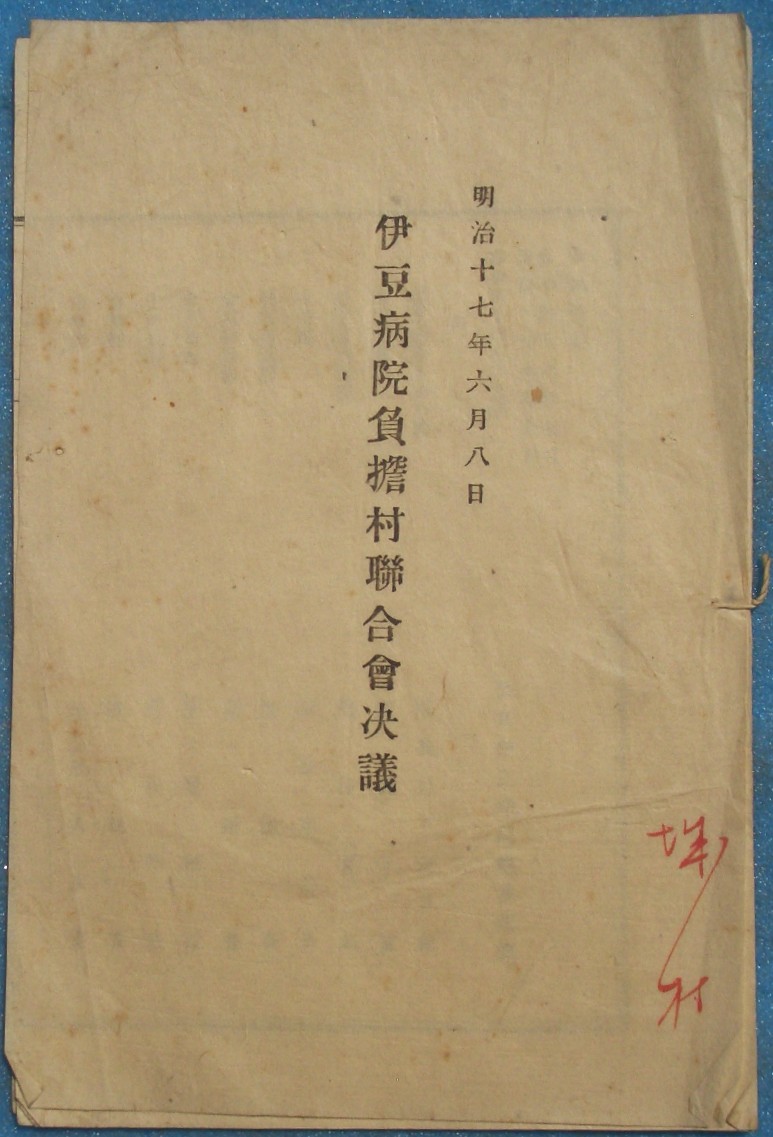 明治十七年六月八日
伊豆病院負擔村聯合會决議
村